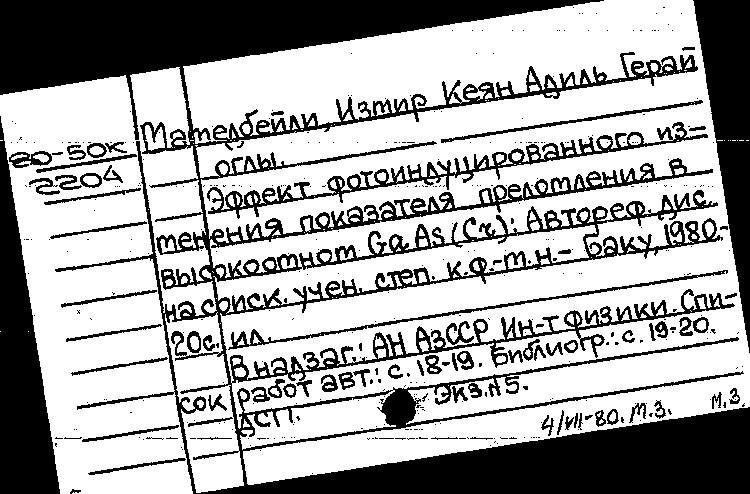 Мамедбейли, Измир Кеян Адиль Герай
20-50к
оглы.
2204
Эффект фотоиндуцированного из-
менения показателя преломления в
высокоомном GaAs(Cr): Автореф. дис.
на соиск. учен. степ. к.ф.-м.н.- Баку, 1980.-
20с., ил.
В надзаг.: АН АзССР, Ин-т физики. Спи-
сок работ авт.: с. 18-19. Библиогр.: с. 19-20.
ДСП. Экз.№5.
4/VII-80. М.З. М.З